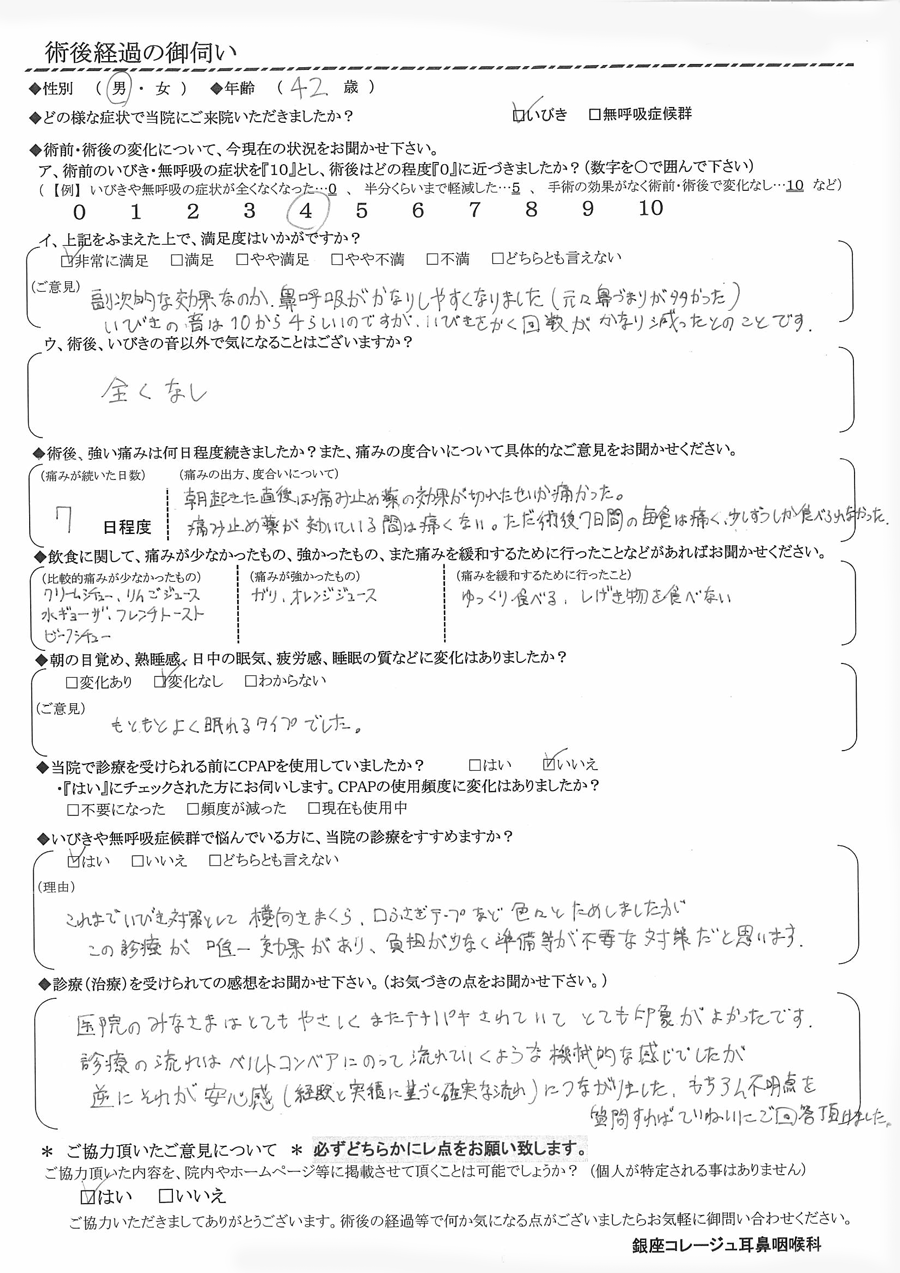 術後経過の御伺い
◆性別 （ 男 ・ 女 ） ◆年齢 （ 42 歳 ）
◆どの様な症状で当院にご来院いただきましたか？ ☑いびき □無呼吸症候群
◆術前・術後の変化について、今現在の状況をお聞かせ下さい。
ア、術前のいびき・無呼吸の症状を『10』とし、術後はどの程度『0』に近づきましたか？（数字を〇で囲んで下さい）
（【例】 いびきや無呼吸の症状が全くなくなった…0 、 半分くらいまで軽減した…5 、 手術の効果がなく術前・術後で変化なし…10 など）
0 1 2 3 4 5 6 7 8 9 10
イ、上記をふまえた上で、満足度はいかがですか？
☑非常に満足 □満足 □やや満足 □やや不満 □不満 □どちらとも言えない
（ご意見） 副次的な効果なのか、鼻呼吸がかなりしやすくなりました（元々鼻づまりが多かった）
いびきの音は10から4らいのですが、いびきをかく回数がかなり減ったとのことです．
ウ、術後、いびきの音以外で気になることはございますか？
全くなし
◆術後、強い痛みは何日程度続きましたか？また、痛みの度合いについて具体的なご意見をお聞かせください。
（痛みが続いた日数） （痛みの出方、度合いについて）
朝起きた直後は痛み止め薬の効果が切れたせいか痛かった。
7 日程度 痛み止め薬が効いている間は痛くない。ただ術後7日間の毎食は痛く、少しずつしか食べられなかった．
◆飲食に関して、痛みが少なかったもの、強かったもの、また痛みを緩和するために行ったことなどがあればお聞かせください。
（比較的痛みが少なかったもの） （痛みが強かったもの） （痛みを緩和するために行ったこと）
クリームシチュー、りんごジュース ガリ、オレンジジュース ゆっくり食べる、しげき物を食べない
水ギョーザ、フレンチトースト
ビーフシチュー
◆朝の目覚め、熟睡感、日中の眠気、疲労感、睡眠の質などに変化はありましたか？
□変化あり ☑変化なし □わからない
（ご意見）
もともとよく眠れるタイプでした。
◆当院で診療を受けられる前にCPAPを使用していましたか？ □はい ☑いいえ
・『はい』にチェックされた方にお伺いします。CPAPの使用頻度に変化はありましたか？
□不要になった □頻度が減った □現在も使用中
◆いびきや無呼吸症候群で悩んでいる方に、当院の診療をすすめますか？
☑はい □いいえ □どちらとも言えない
（理由）
これまでいびき対策として 横向きまくら、口ふさぎテープなど 色々とためしましたが
この診療が 唯一効果があり、負担が少なく準備等が不要な対策だと思います．
◆診療（治療）を受けられての感想をお聞かせ下さい。（お気づきの点をお聞かせ下さい。）
医院のみなさまはとてもやさしくまたテキパキされていて とても印象がよかったです．
診療の流れは ベルトコンベアにのって流れていくような機械的な感じでしたが
逆にそれが安心感（経験と実績に基づく確実な流れ）につながりました．もちろん不明点を
質問すればていねいにご回答頂けました。
＊ ご協力頂いたご意見について ＊ 必ずどちらかにレ点をお願い致します。
ご協力頂いた内容を、院内やホームページ等に掲載させて頂くことは可能でしょうか？ （個人が特定される事はありません）
☑はい □いいえ
ご協力いただきましてありがとうございます。術後の経過等で何か気になる点がございましたらお気軽に御問い合わせください。
銀座コレージュ耳鼻咽喉科